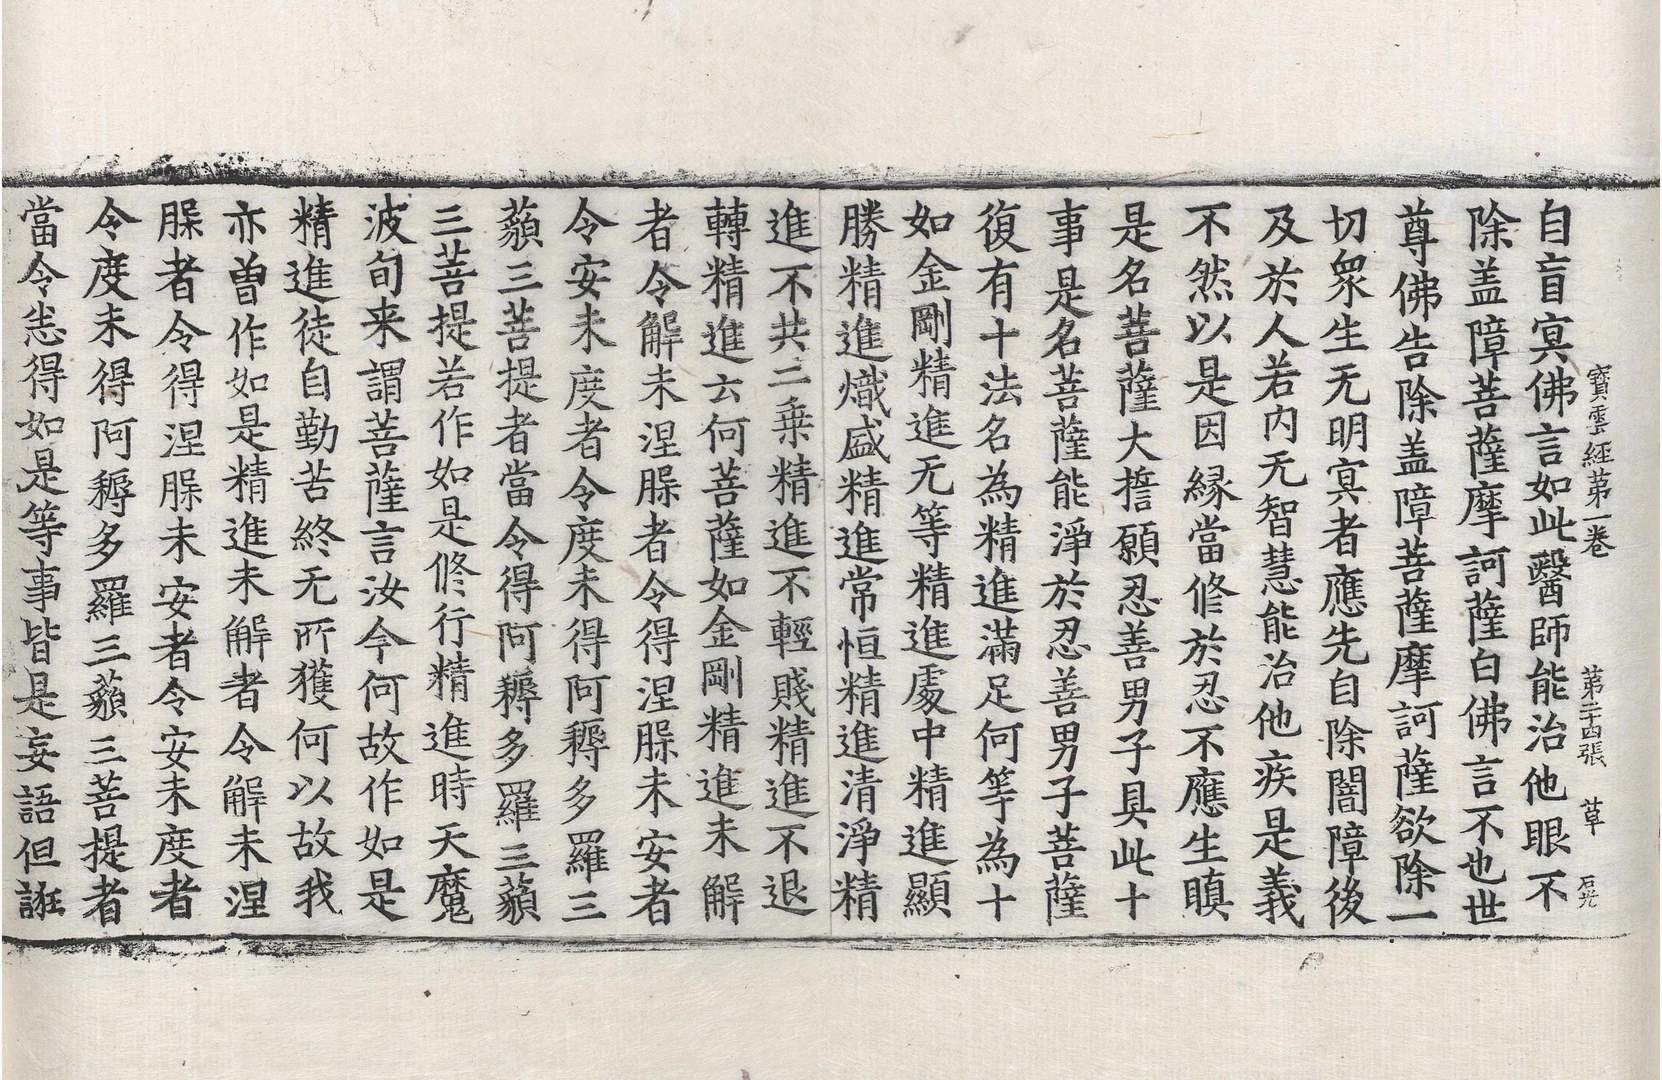 寶雲經苐一卷　苐二十四張　草　石光
自盲㝠佛言如此醫師能治他眼不
除盖障菩薩摩訶薩白佛言不也世
尊佛告除盖障菩薩摩訶薩欲除一
切衆生无明㝠者應先自除闇障後
及於人若内无智慧能治他疾是義
不然以是因縁當修於忍不應生瞋
是名菩薩大誓願忍善男子具此十
事是名菩薩能淨於忍善男子菩薩
復有十法名為精進滿足何等為十
如金剛精進无等精進處中精進顯
勝精進熾盛精進常恒精進清淨精
進不共二乗精進不輕賤精進不退
轉精進云何菩薩如金剛精進未解
者令解未涅㬱者令得涅㬱未安者
令安未度者令度未得阿耨多羅三
藐三菩提者當令得阿耨多羅三藐
三菩提若作如是修行精進時天魔
波旬来謂菩薩言汝今何故作如是
精進徒自勤苦終无所獲何以故我
亦曽作如是精進未解者令解未涅
㬱者令得涅㬱未安者令安未度者
令度未得阿耨多羅三藐三菩提者
當令悉得如是等事皆是妄語但誑